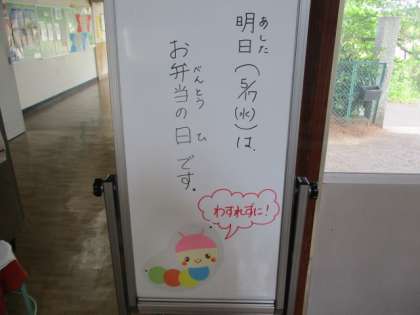 明日(5/7(水))は、
あした
お弁当の日です。
べんとう ひ
わすれずに！